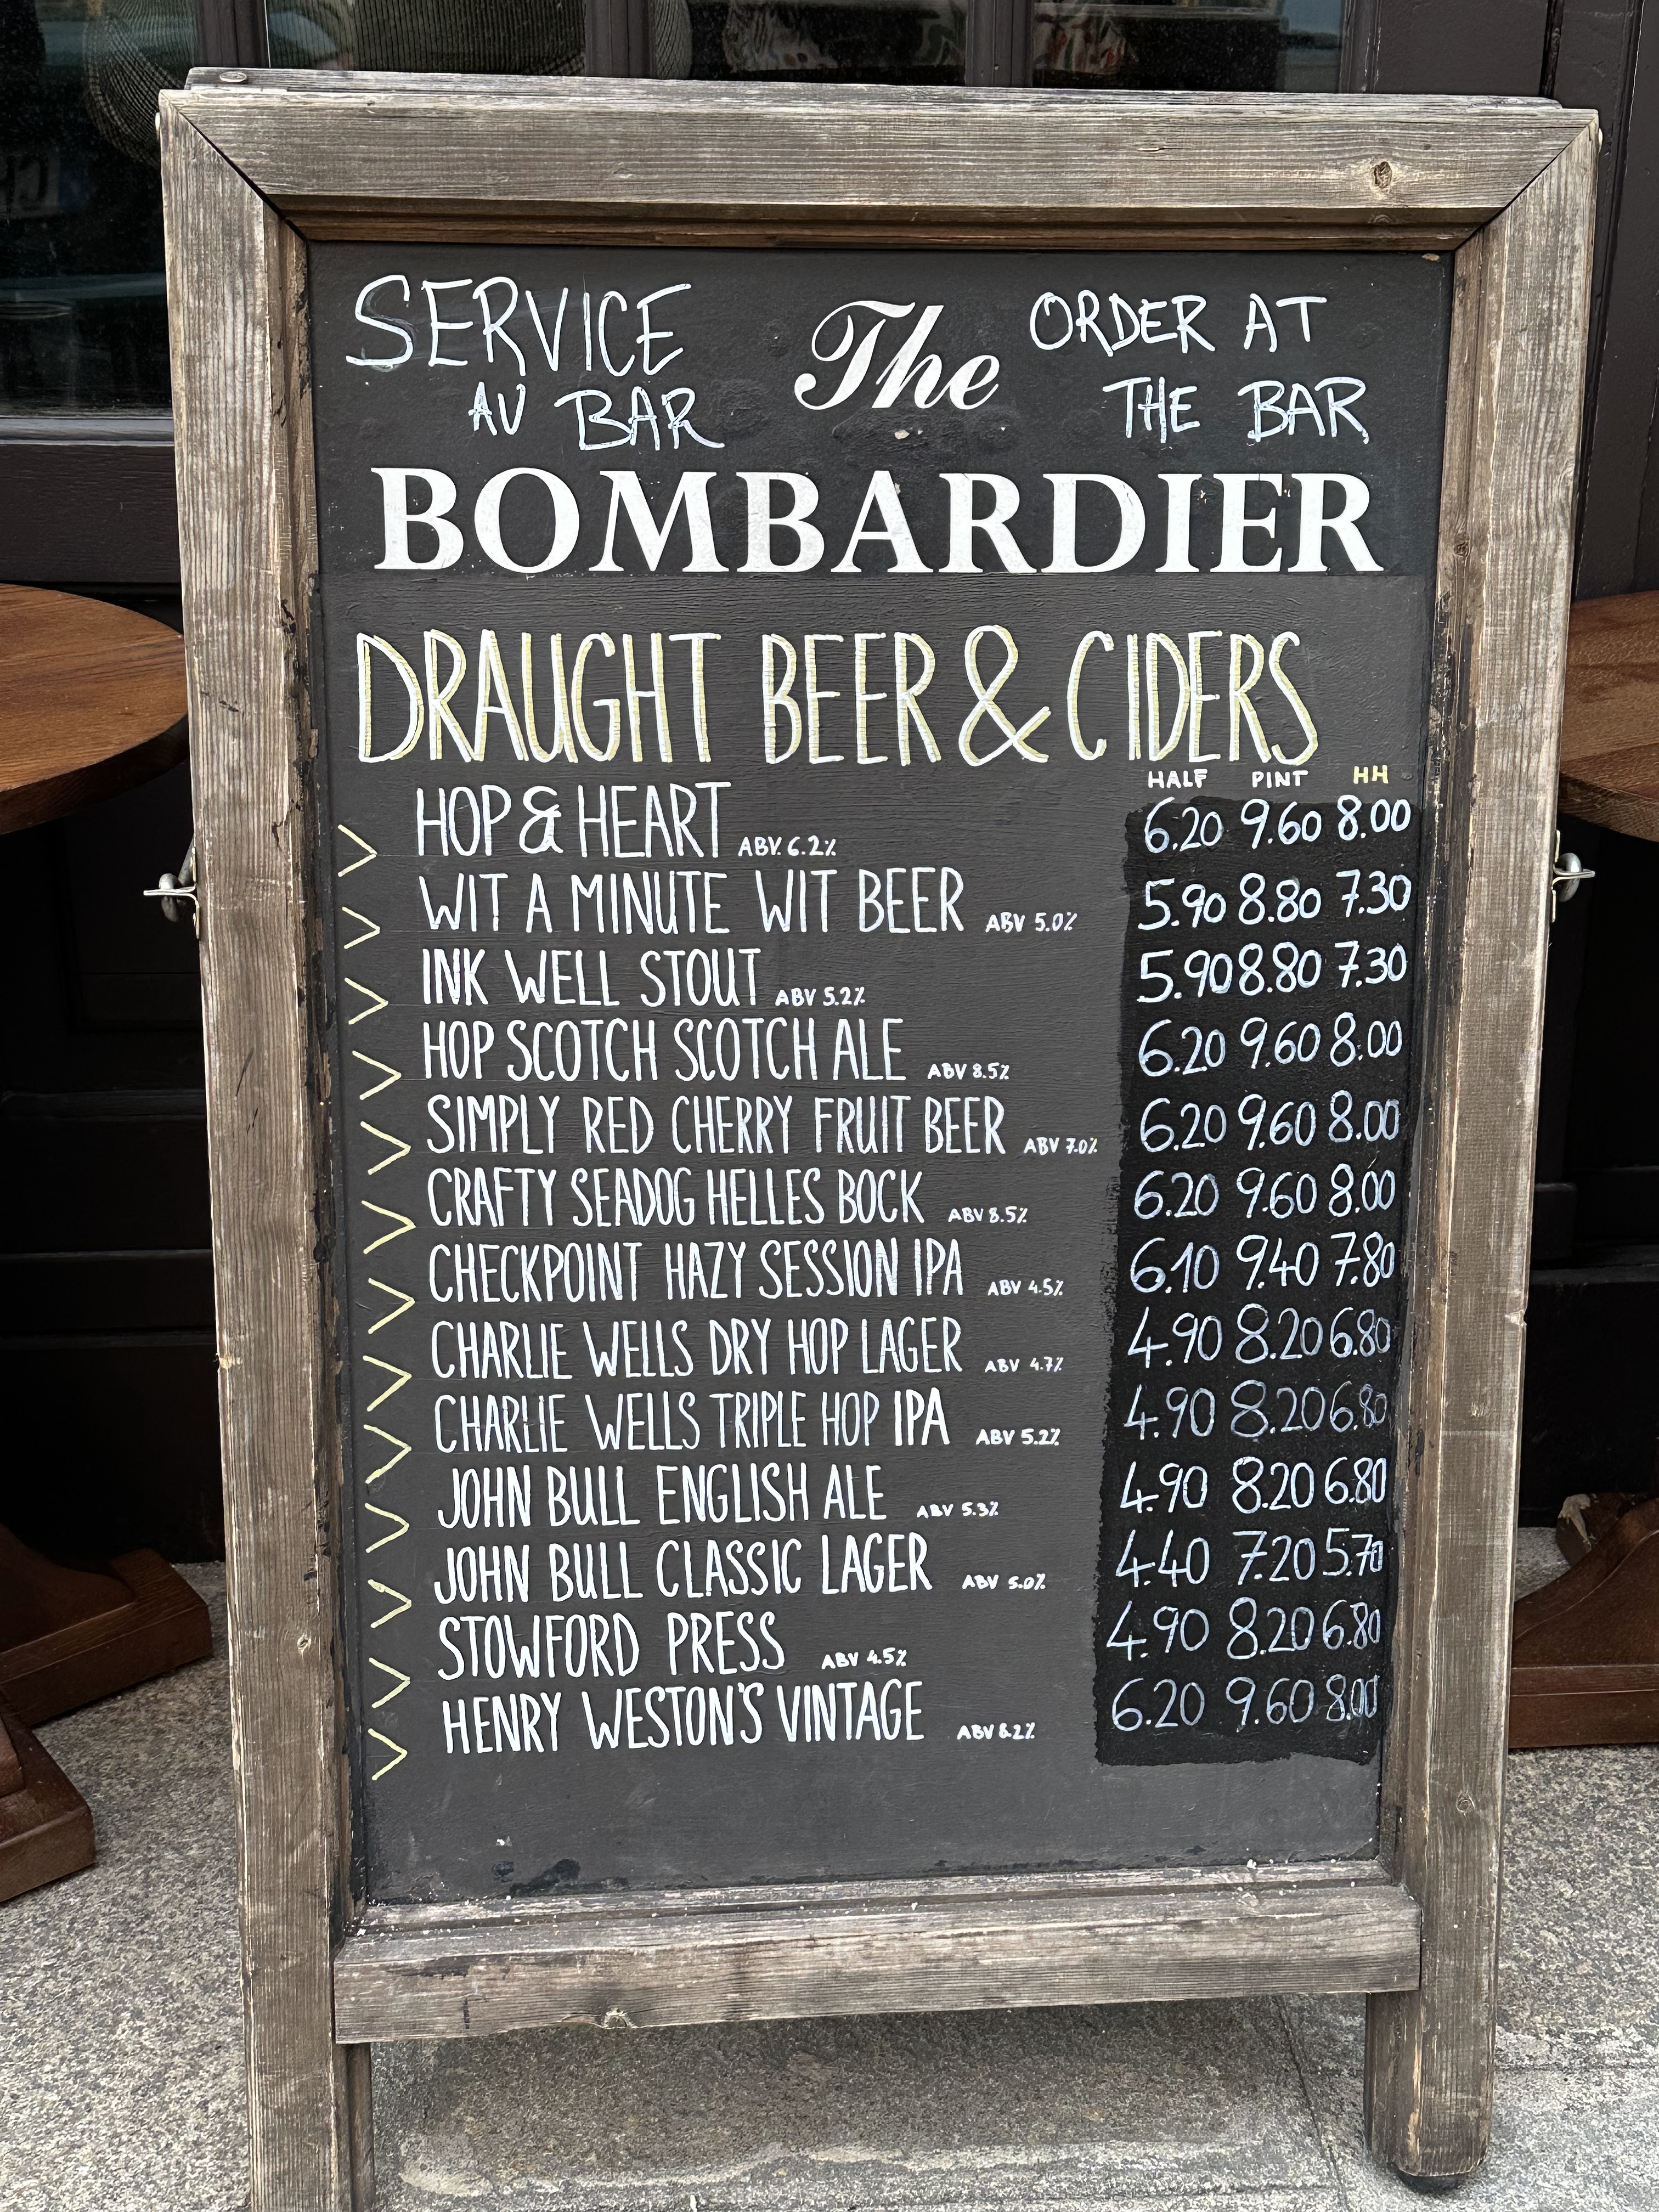 SERVICE AU BAR
The
ORDER AT THE BAR
BOMBARDIER
DRAUGHT BEER & CIDERS
HALF PINT HH
HOP & HEART ABV. 6.2% 6.20 9.60 8.00
WIT A MINUTE WIT BEER ABV 5.0% 5.90 8.80 7.30
INK WELL STOUT ABV 5.2% 5.90 8.80 7.30
HOP SCOTCH SCOTCH ALE ABV 8.5% 6.20 9.60 8.00
SIMPLY RED CHERRY FRUIT BEER ABV 7.0% 6.20 9.60 8.00
CRAFTY SEADOG HELLES BOCK ABV 8.5% 6.20 9.60 8.00
CHECKPOINT HAZY SESSION IPA ABV 4.5% 6.10 9.40 7.80
CHARLIE WELLS DRY HOP LAGER ABV 4.7% 4.90 8.20 6.80
CHARLIE WELLS TRIPLE HOP IPA ABV 5.2% 4.90 8.20 6.80
JOHN BULL ENGLISH ALE ABV 5.3% 4.90 8.20 6.80
JOHN BULL CLASSIC LAGER ABV 5.0% 4.40 7.20 5.70
STOWFORD PRESS ABV 4.5% 4.90 8.20 6.80
HENRY WESTON'S VINTAGE ABV 8.2% 6.20 9.60 8.00